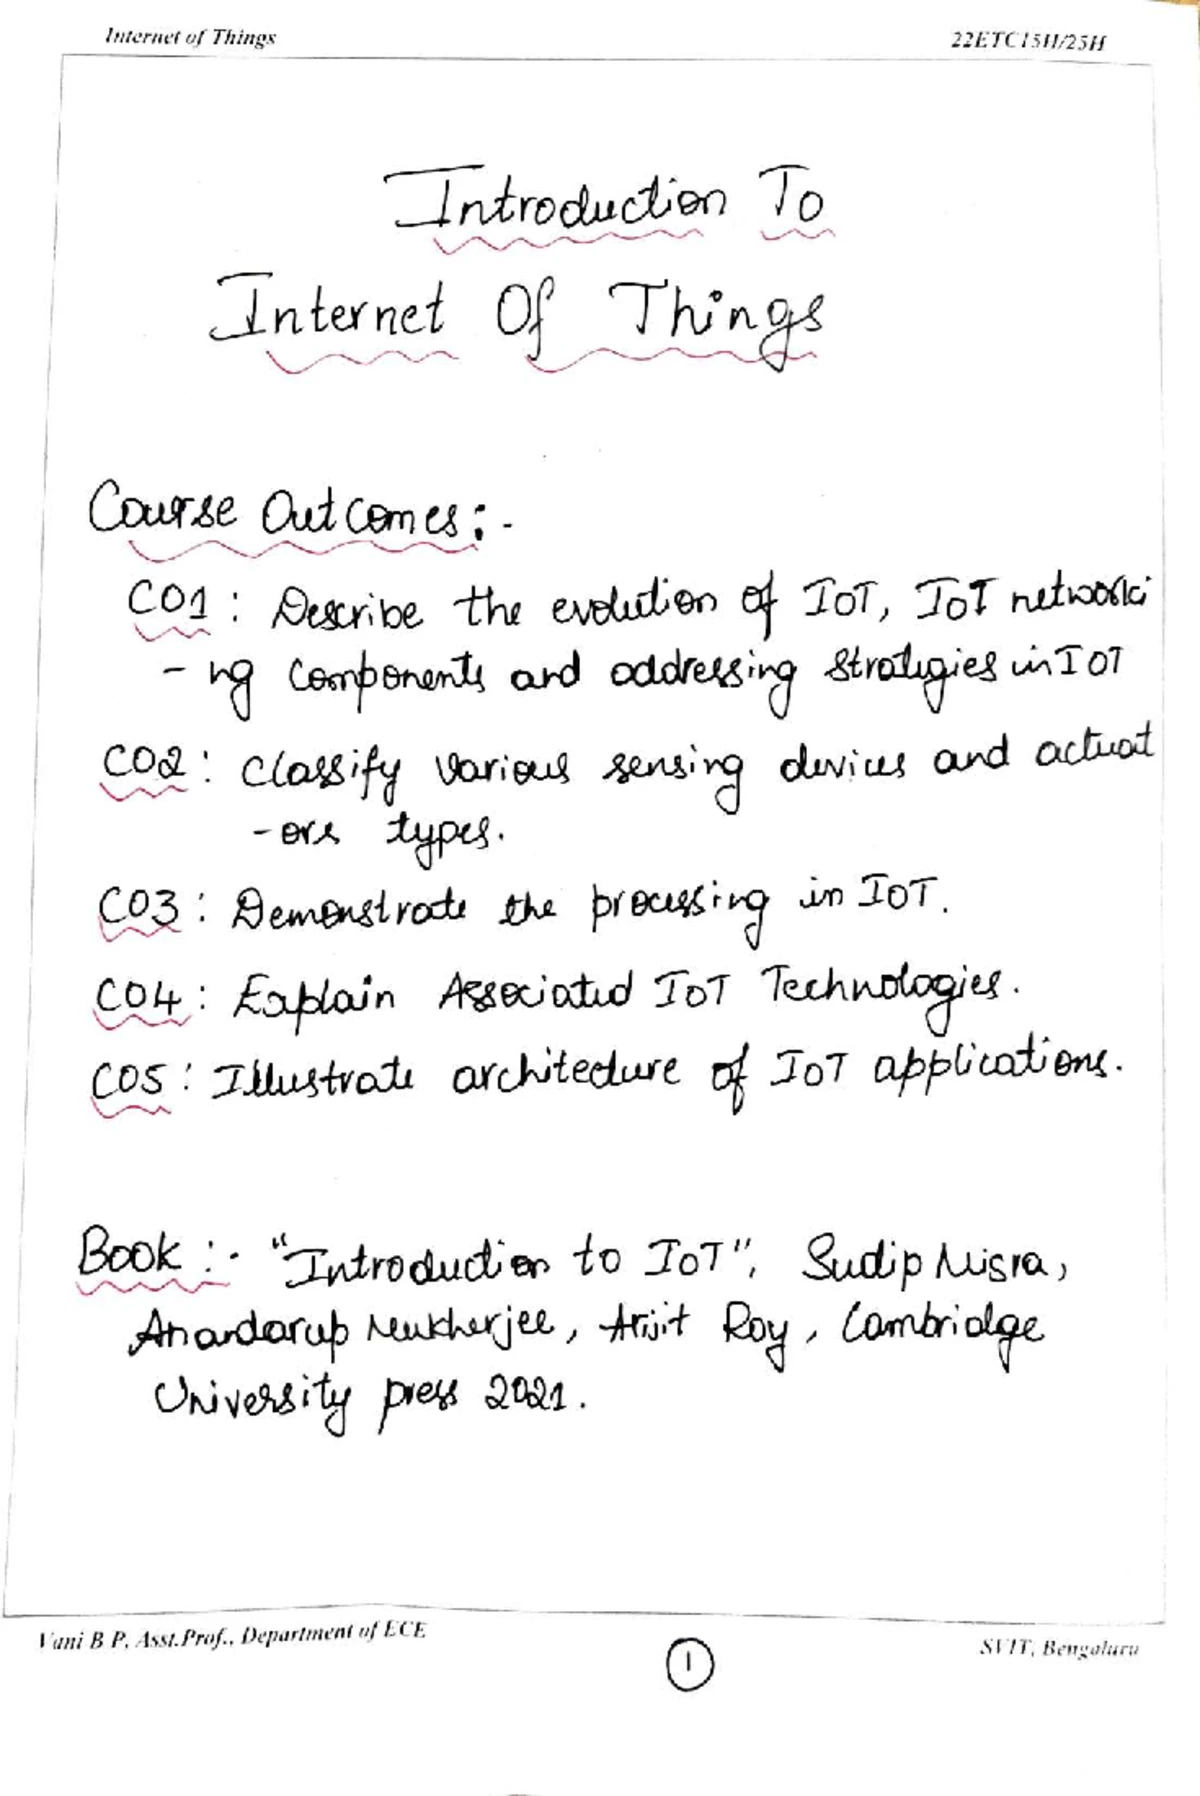 Internet of Things
22ETC15H/25H
Introduction To
Internet Of Things
Course Outcomes:-
CO1: Describe the evolution of IoT, IoT networki
-ng components and addressing strategies in IOT
CO2: Classify various sensing devices and actuat
-ors types.
CO3: Demonstrate the processing in IoT.
CO4: Explain Associated IoT Technologies.
CO5: Illustrate architecture of IoT applications.
Book:- "Introduction to IoT", Sudip Misra,
Anandarup Mukherjee, Arijit Roy, Cambridge
University press 2021.
Vani B P, Asst.Prof., Department of ECE
1
SVIT, Bengaluru